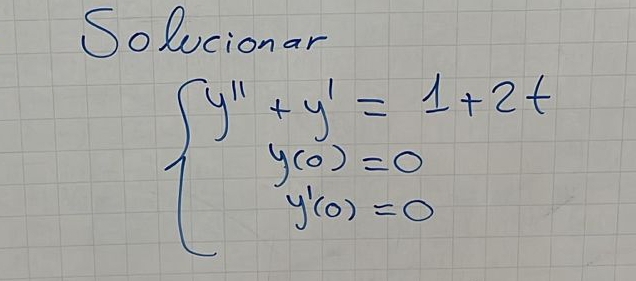 Solucionar
y'' + y' = 1+2t
y(0) = 0
y'(0) = 0